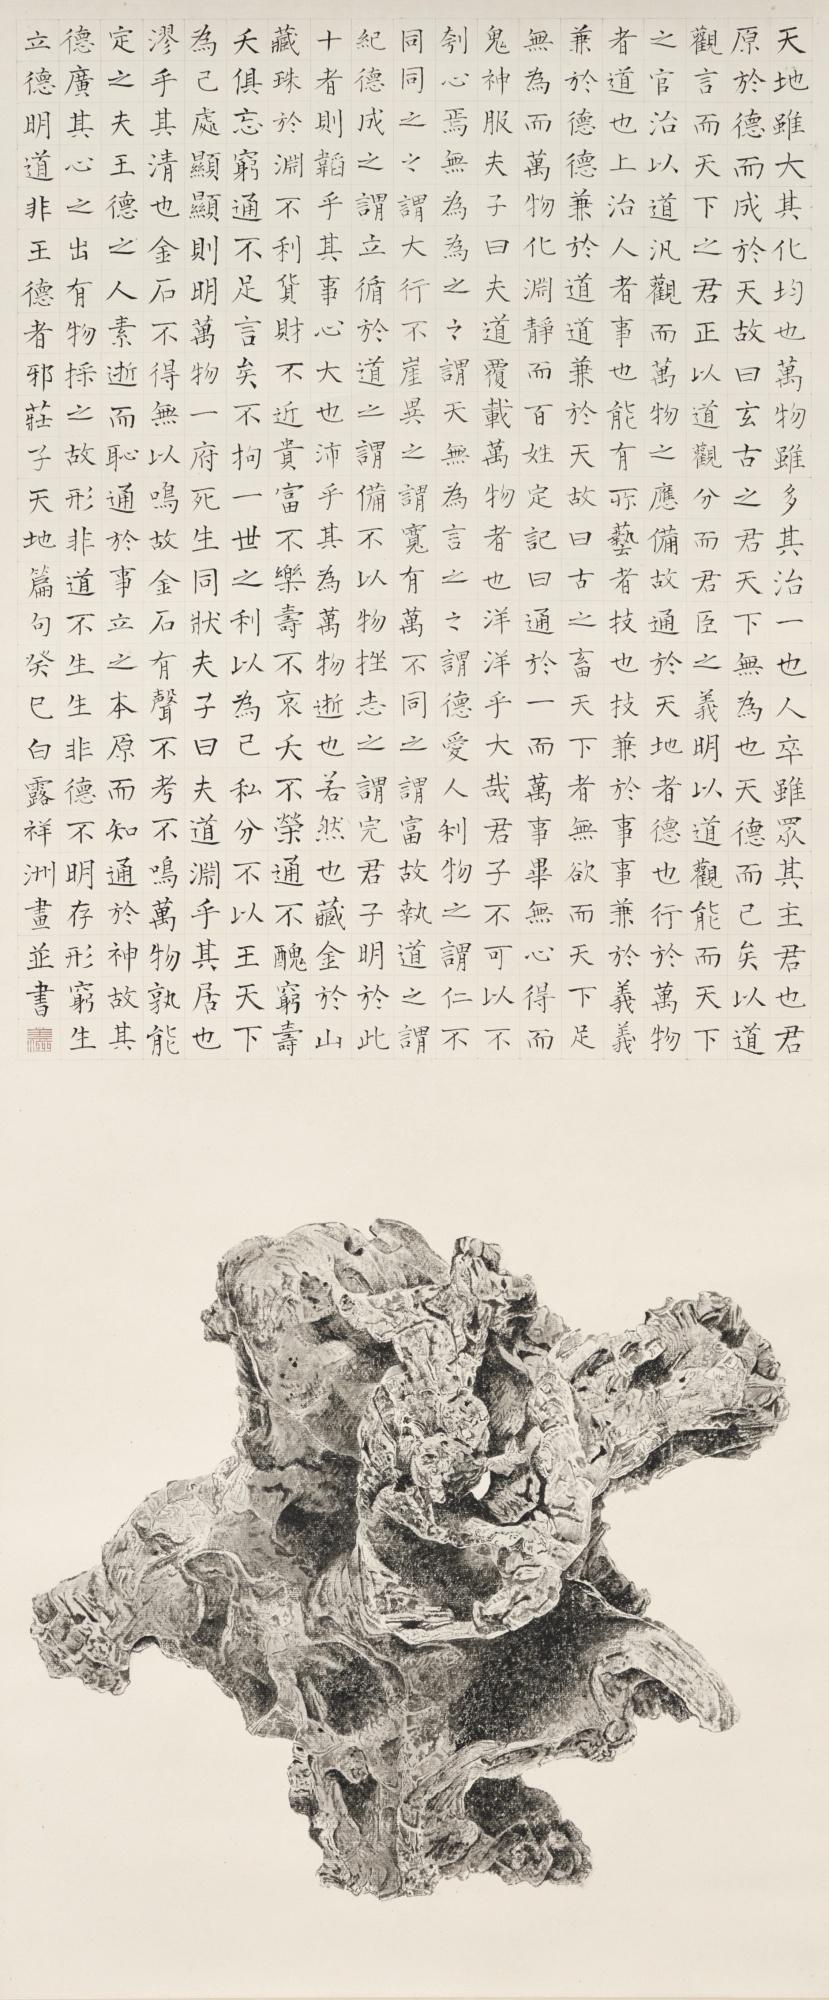 天地雖大其化均也萬物雖多其治一也人卒雖眾其主君也君
原於德而成於天故曰玄古之君天下無為也天德而已矣以道
觀言而天下之君正以道觀分而君臣之義明以道觀能而天下
之官治以道汎觀而萬物之應備故通於天地者德也行於萬物
者道也上治人者事也能有所藝者技也技兼於事事兼於義義
兼於德德兼於道道兼於天故曰古之畜天下者無欲而天下足
無為而萬物化淵靜而百姓定記曰通於一而萬事畢無心得而
鬼神服夫子曰夫道覆載萬物者也洋洋乎大哉君子不可以不
刳心焉無為為之之謂天無為言之之謂德愛人利物之謂仁不
同同之之謂大行不崖異之謂寬有萬不同之謂富故執道之謂
紀德成之謂立循於道之謂備不以物挫志之謂完君子明於此
十者則韜乎其事心大也沛乎其為萬物逝也若然也藏金於山
藏珠於淵不利貨財不近貴富不樂壽不哀夭不榮通不醜窮壽
夭俱忘窮通不足言矣不拘一世之利以為己私分不以王天下
為己處顯顯則明萬物一府死生同狀夫子曰夫道淵乎其居也
漻乎其清也金石不得無以鳴故金石有聲不考不鳴萬物孰能
定之夫王德之人素逝而恥通於事立之本原而知通於神故其
德廣其心之出有物採之故形非道不生生非德不明存形窮生
立德明道非王德者邪莊子天地篇句癸巳白露祥洲畫並書